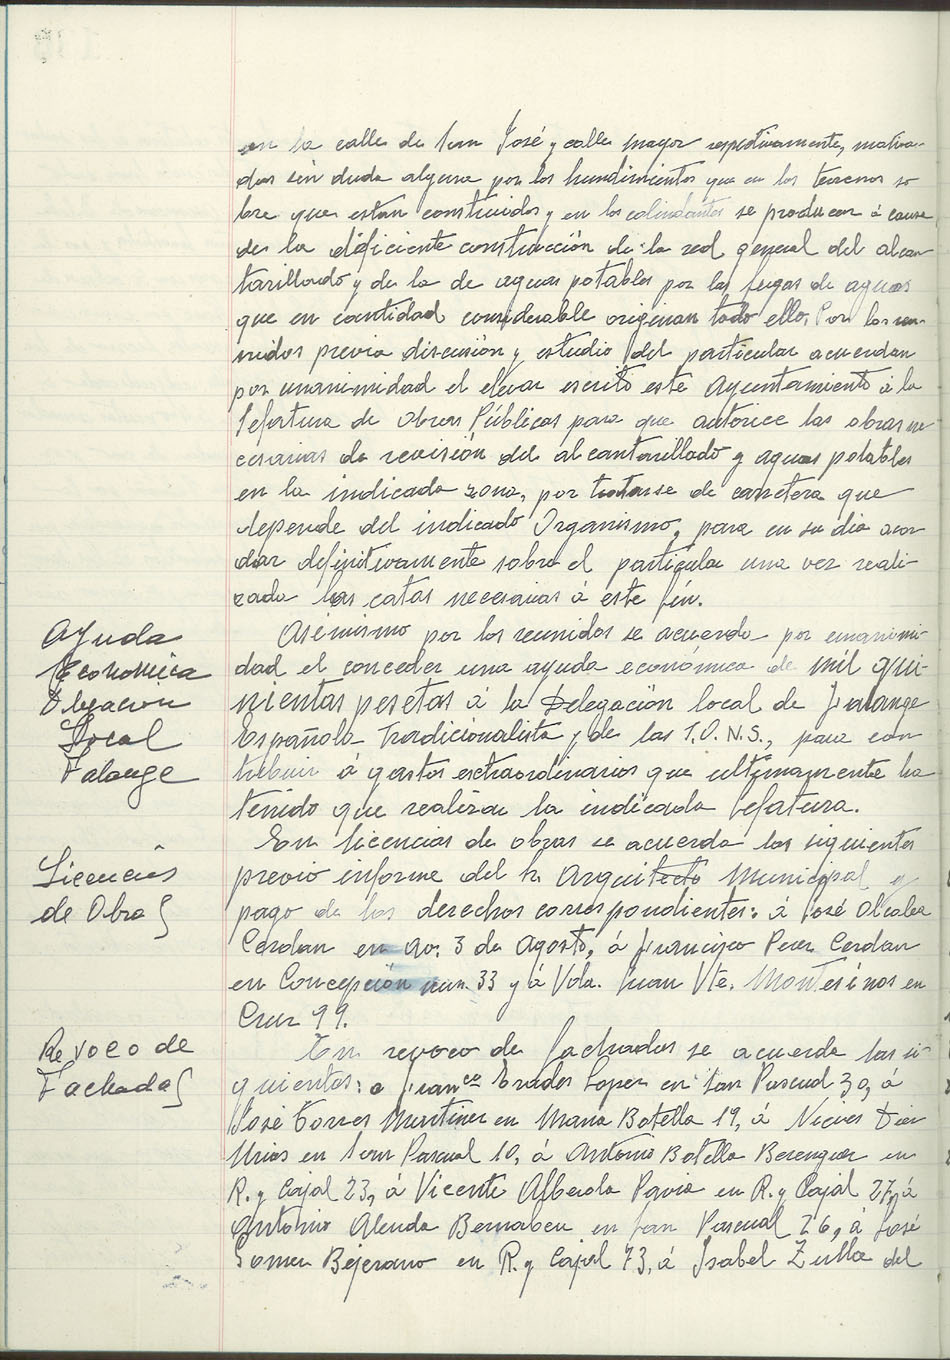 en la calle de San José y calle mayor respectivamente, motiva-
das sin duda alguna por los hundimientos que en los terrenos so
bre que estan construidos y en los colindantes se producen á causa
de la dificiente construcción de la red general del alcan
tarillado y de la de aguas potables por las fugas de aguas
que en cantidad considerable originan todo ello. Por los reu-
nidos previa discusión y estudio del particular acuerdan
por unanimidad el elevar escrito este Ayuntamiento á la
Jefatura de Obras Públicas para que autorice las obras ne
cesarias de revisión del alcantarillado y aguas potables
en la indicada zona, por tratarse de carretera que
depende del indicado Organismo, para en su dia acor
dar definitivamente sobre el particular una vez reali-
zada las catas necesarias á este fin.
Ayuda
Economica
Dlgacion
Local
Falange
Asimismo por los reunidos se acuerda por unanimi-
dad el conceder una ayuda económica de mil qui-
nientas pesetas á la Delegación local de Falange
Española Tradicionalista y de las J.O.N.S., para con
tribuir á gastos extraordinarios que ultimamente ha
tenido que realizar la indicada Jefatura.
Licencias
de Obras
En licencias de obras se acuerda las siguientes
previo informe del Sr. Arquitecto Municipal y
pago de los derechos correspondientes: á José Alcaba
Cerdan en Av. 3 de Agosto, á Francisco Perez Cerdan
en Concepción num. 33 y á Vda. Juan Vte. Montesinos en
Cruz 99.
Revoco de
Fachadas
En revoco de fachadas se acuerda las si-
guientes: a Franco Prades Lopez en San Pascual 30, á
José Torres Martinez en Maria Botella 19, á Nieves
en San Pascual 10, á Antonio Botella Berenguer en
R. y Cajal 23, á Vicente Alberola Pavia en R. y Cajal 27, á
Antonio Alenda Bernabeu en San Pascual 26, á José
Gomez Bejerano en R. y Cajal 73, á Isabel Zulla del